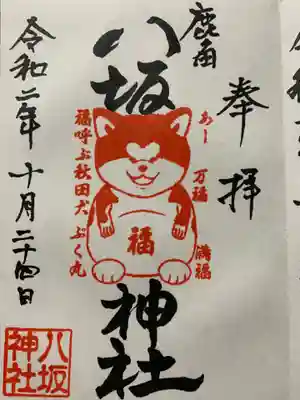 奉拝
鹿角
八坂神社
あー
万福
満福
福
福呼ぶ秋田犬 ぷく丸
令和二年 十月 二十四日
八坂
神社